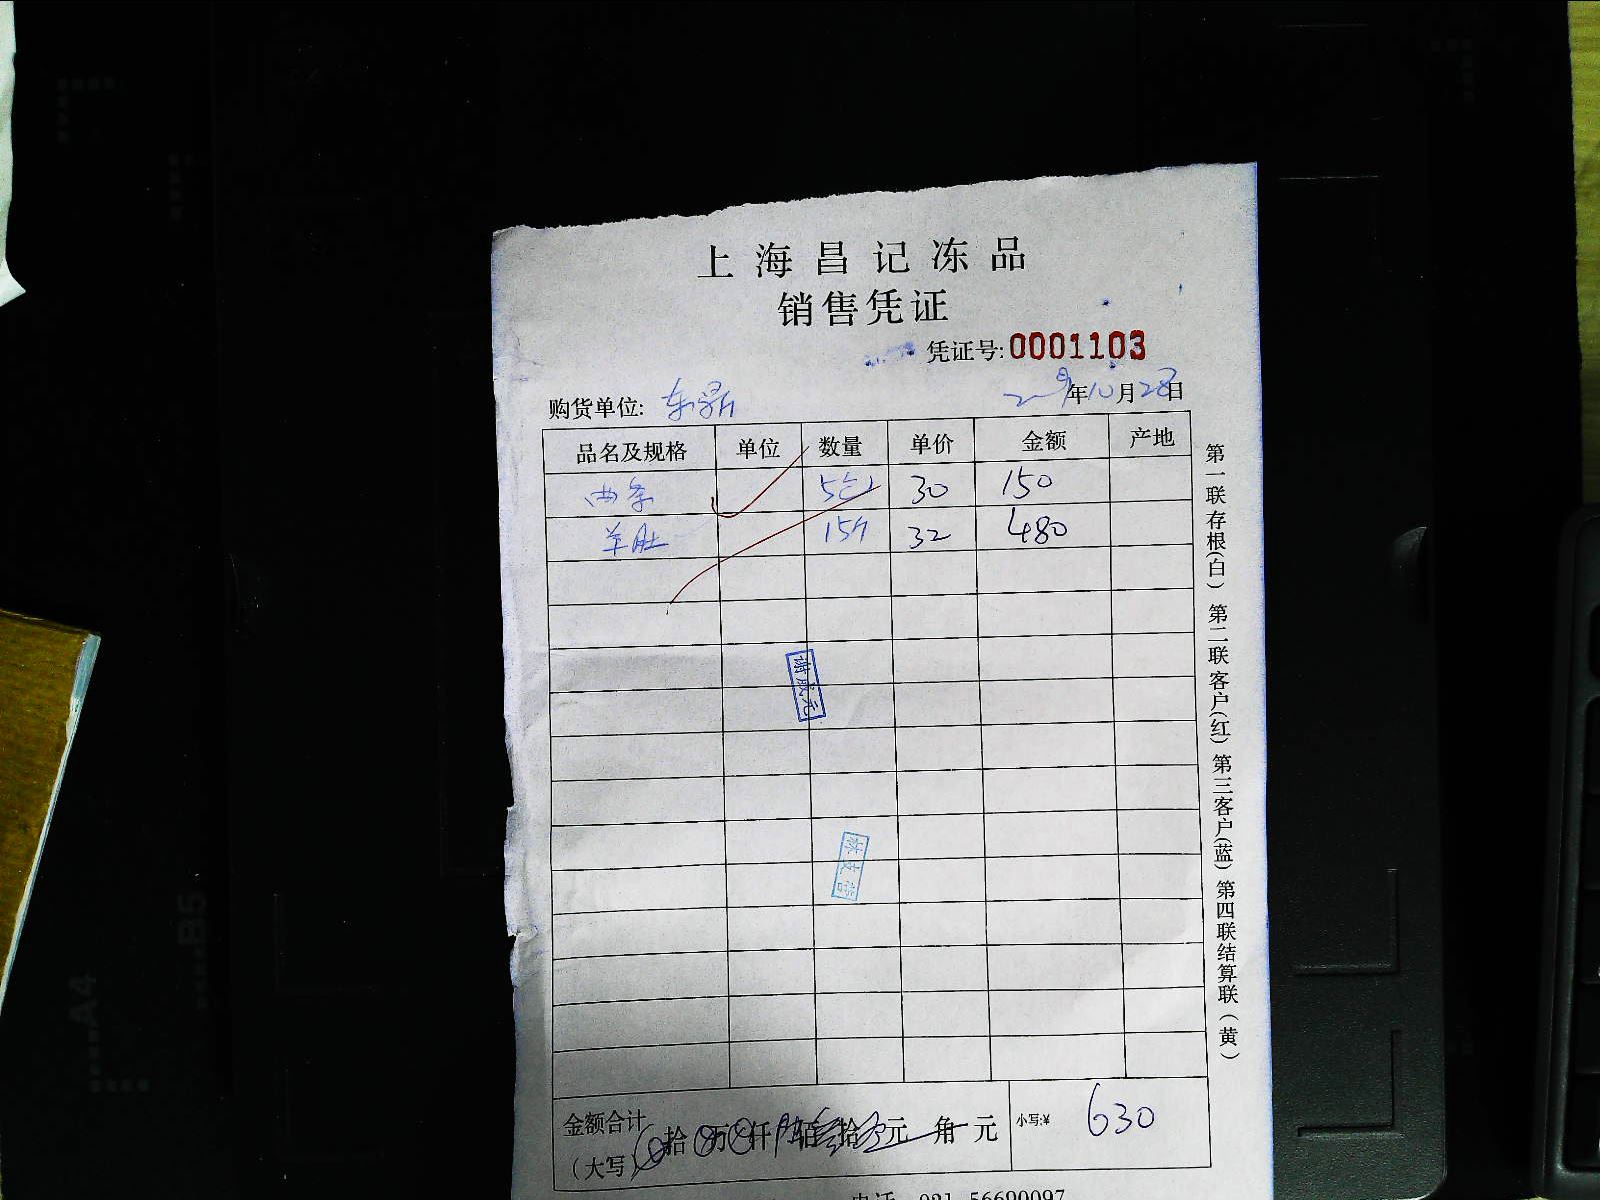 上海昌记冻品
销售凭证
凭证号: 0001103
购货单位: 东鼎
年10月28日
品名及规格 单位 数量 单价 金额 产地
30 150
羊肚 15斤 32 480
谢成元
金额合计
(大写) 拾 万 仟 佰 拾 元 角 元 小写:¥ 630
电话 021-56690097
第一联存根(白) 第二联客户(红) 第三客户(蓝) 第四联结算联(黄)
A4
B5